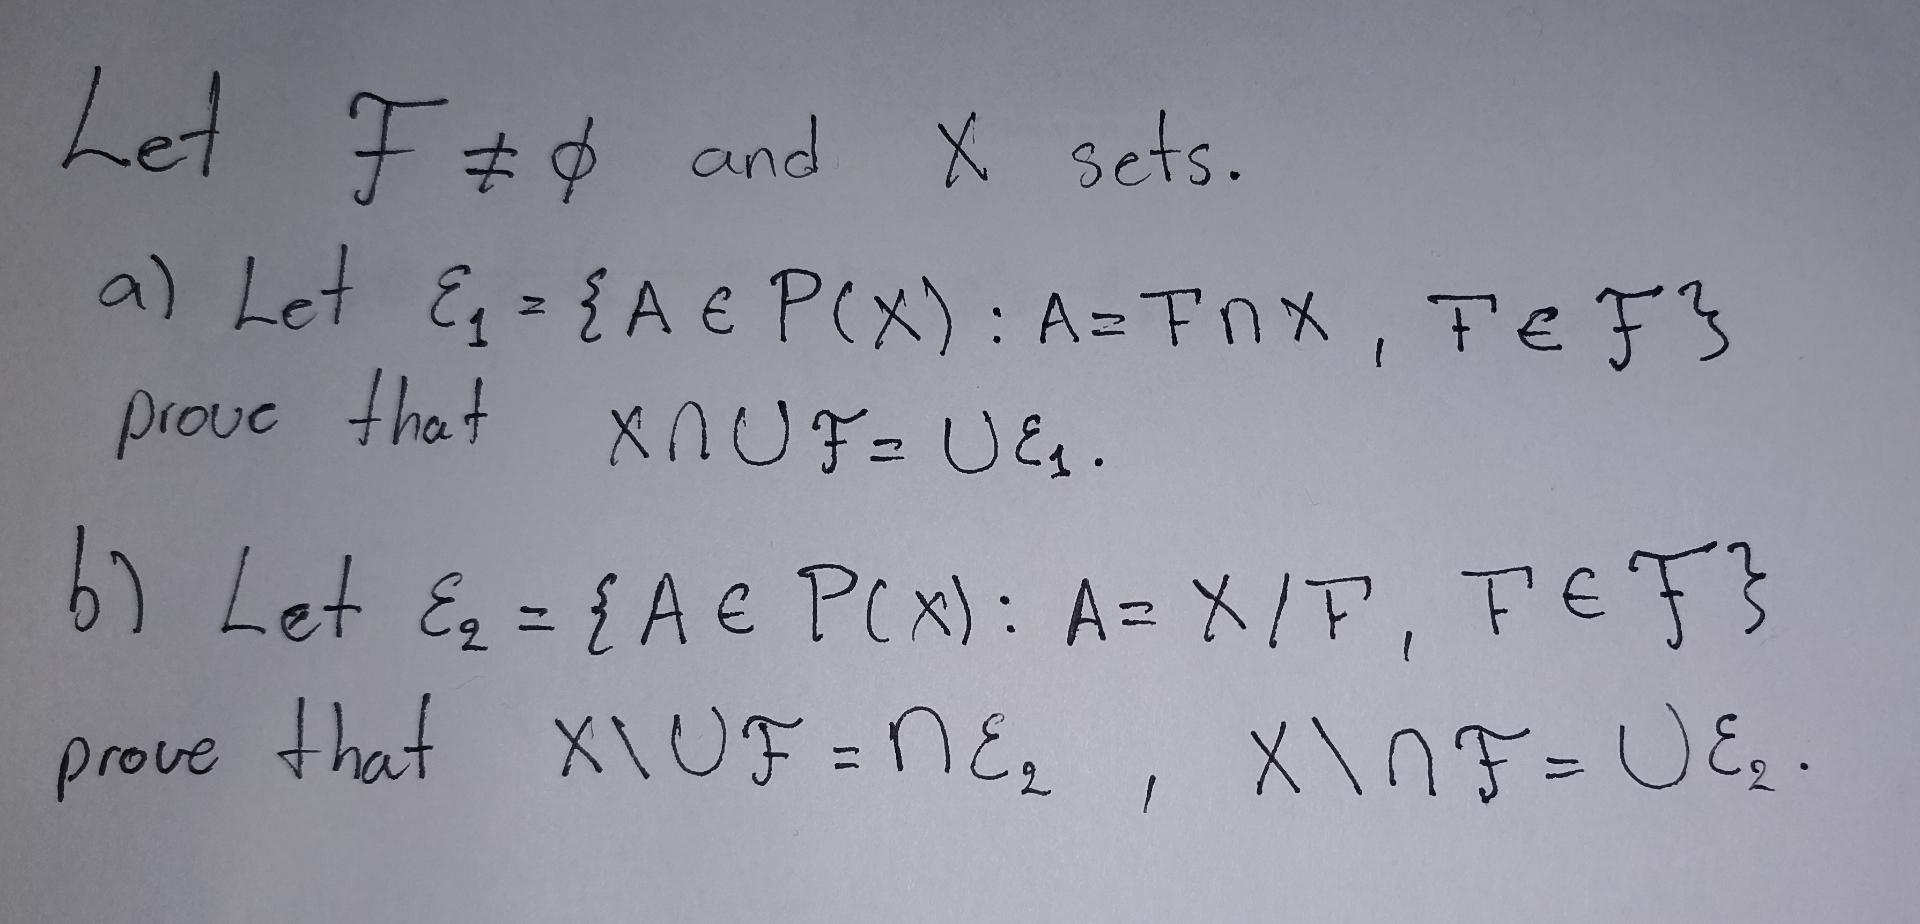 Let ℱ ≠ ∅ and X sets.
a) Let ℰ₁ = {A ∈ P(X) : A = F ∩ X, F ∈ ℱ}
prove that X ∩ ∪ℱ = ∪ℰ₁.
b) Let ℰ₂ = {A ∈ P(X) : A = X / F, F ∈ ℱ}
prove that X \ ∪ℱ = ∩ℰ₂ , X \ ∩ℱ = ∪ℰ₂.